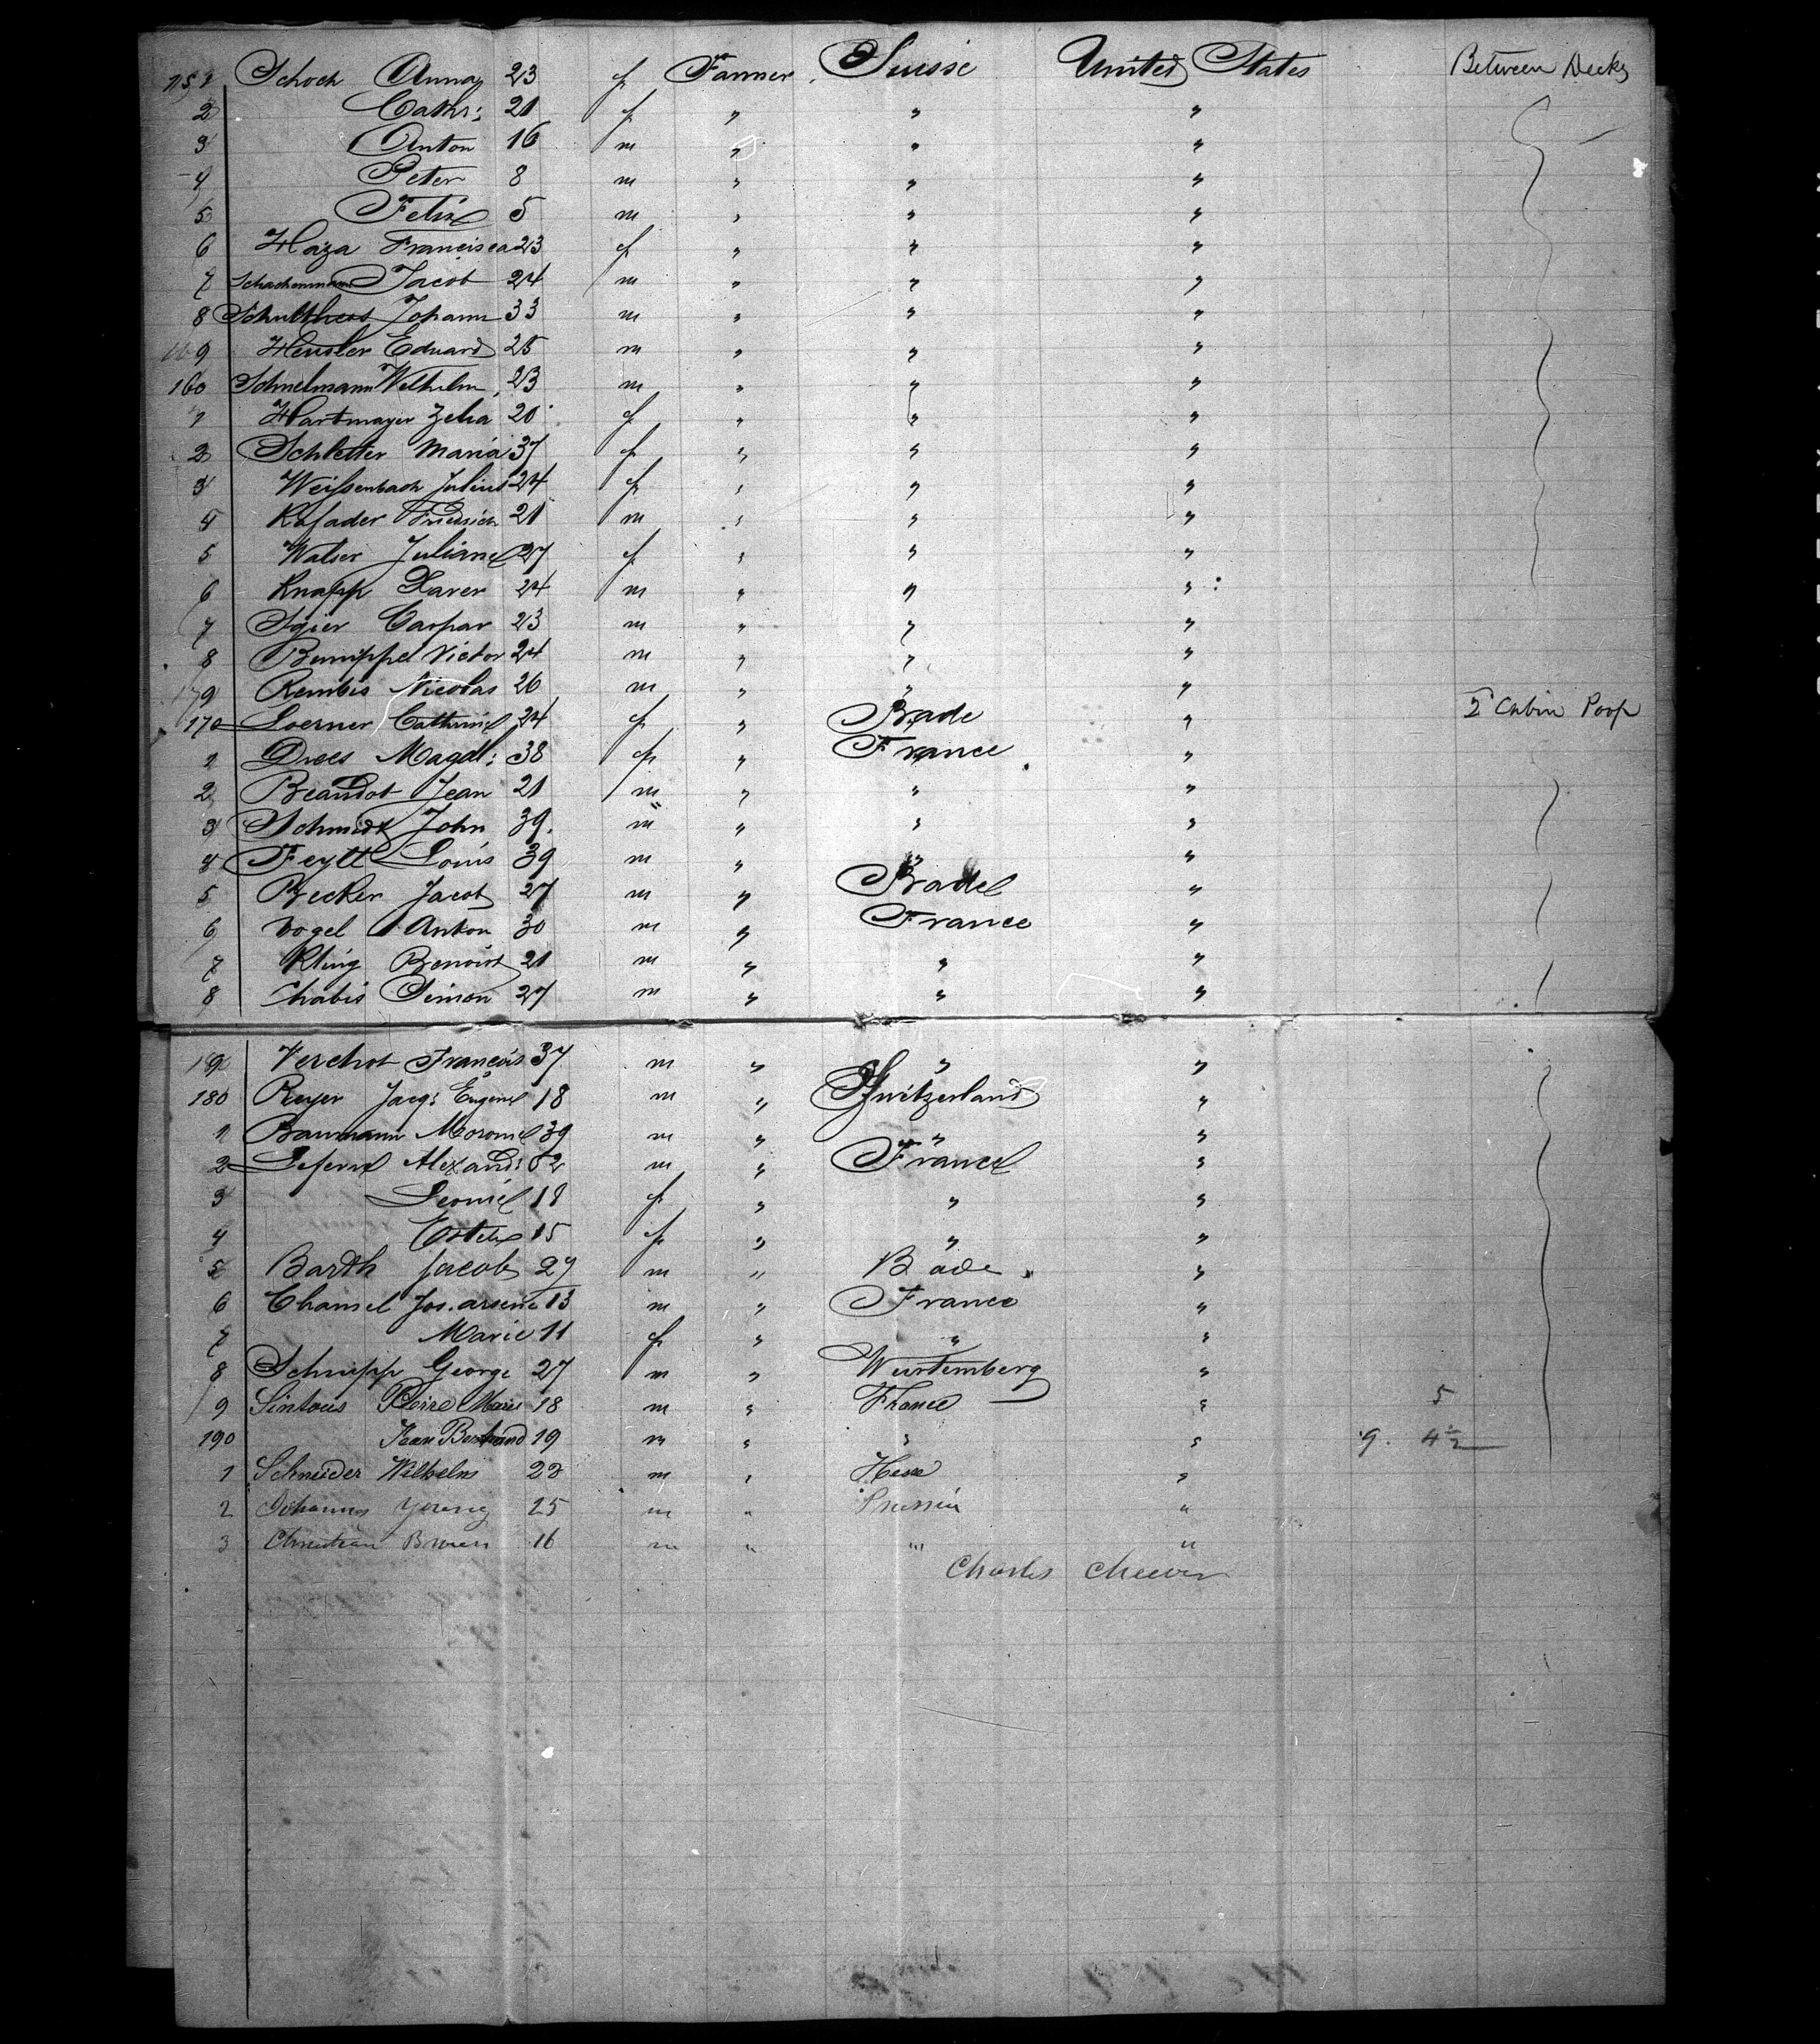 151 Schoch Anna 23 f Farmer Suisse United States Between Decks
2 Cath: 21 f " " "
3 Anton 16 m " " "
4 Peter 8 m " " "
5 Felix 5 m " " "
6 Haza Francisca 23 f " " "
7 Schachenmann Jacob 24 m " " "
8 Schulthess Johann 33 m " " "
9 Heusler Eduard 25 m " " "
160 Schnelmann Wilhelm 23 m " " "
1 Hartmayer Zelia 20 f " " "
2 Schletter Maria 37 f " " "
3 Weissenbach Julius 24 f " " "
4 Kafader Friedrich 21 m " " "
5 Walser Juliane 27 f " " "
6 Knapp Xaver 24 m " " "
7 Sgier Caspar 23 m " " "
8 Victor 24 m " " "
9 Rembis Nicolas 26 m " " "
170 Loerner Catherine 24 f " Bade " 2 Cabin Poop
1 Drees Magdl: 38 f " France "
2 Beaudot Jean 21 m " " "
3 Schmidt John 39 m " " "
4 Feytt Louis 39 m " " "
5 Becker Jacob 27 m " Bade "
6 Vogel Anton 30 m " France "
7 Kling Benoist 21 m " " "
8 Chabis Simon 27 m " " "
9 Verchot François 37 m " " "
180 Reyer Jacq: Eugene 18 m " Switzerland "
1 Baumann 39 m " " "
2 Alexand: 52 m " France "
3 Leonie 18 f " " "
4 Estele 15 f " " "
5 Barth Jacob 27 m " Bade "
6 Chamel Jos. arsene 13 m " France "
7 Marie 11 f " " "
8 Schnepp George 27 m " Wurtemberg "
9 Sintous Pierre Marie 18 m " France " 5
190 Jean Bertrand 19 m " " " 9. 4½
1 Schneider Wilhelm 28 m " Hesse "
2 Johannes Young 25 m " Prussia "
3 Christian 16 m " " "
Charles Cheever